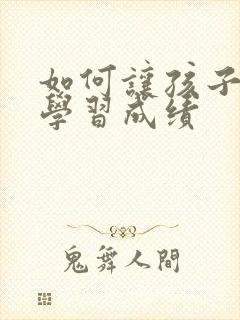 如何讓孩子
學習成績
鬼舞人間